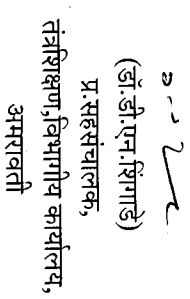 (डॉ.डी.एन.शिंगाडे)
प्र.सहसंचालक,
तंत्रशिक्षण,विभागीय कार्यालय,
अमरावती